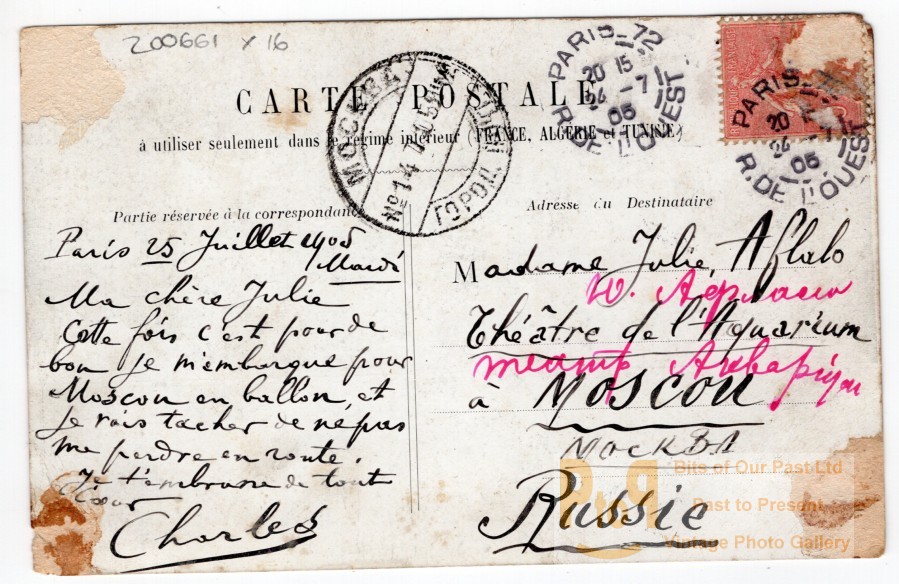 200661 x 16
CARTE POSTALE
à utiliser seulement dans le régime intérieur (FRANCE, ALGÉRIE et TUNISIE)
PARIS_72
20 15
24 -7
05
R. DE L'OUEST
PARIS_
20
24 -7
05
R. DE L'OUEST
МОСКВА
ГОРОД.
Partie réservée à la correspondance
Adresse du Destinataire
Paris 25 Juillet 1905
Mardi
Ma chère Julie
Cette fois c'est pour de
bon je m'embarque pour
Moscou en ballon, et
je vais tacher de ne pas
me perdre en route.
Je t'embrasse de tout
Coeur
Charles
Madame Julie, Aflalo
Ю.
Théâtre de l'Aquarium
театр Аквариум
à Moscou
МОСКВА
Russie
Bits of Our Past Ltd
Past to Present
Vintage Photo Gallery